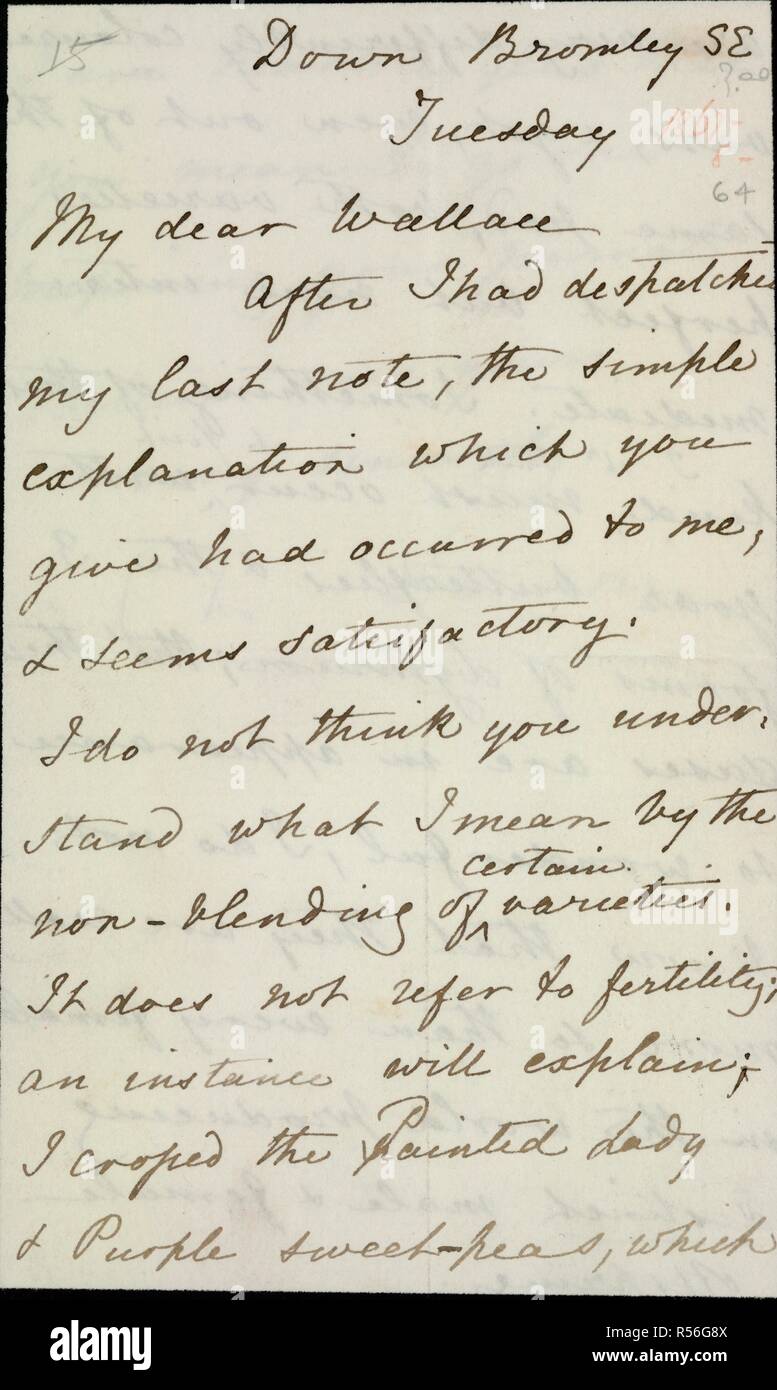 15
Down Bromley SE
Tuesday
64
My dear Wallace
After I had despatched
my last note, the simple
explanation which you
give had occurred to me,
& seems satisfactory.
I do not think you under-
stand what I mean by the
certain
non-blending of ^ varieties.
It does not refer to fertility;
an instance will explain;
I croped the Painted Lady
& Purple sweet-peas, which
alamy
Image ID: R56G8X
www.alamy.com